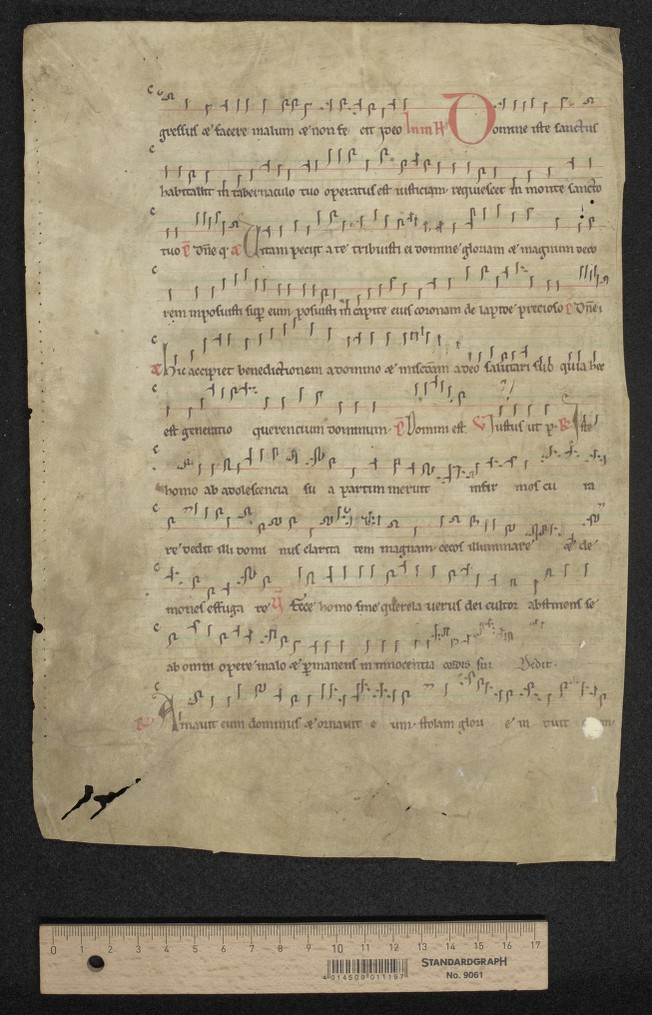 gressus est facere malum et non fe cit ideo In iii H Domine iste sanctus
habitabit in tabernaculo tuo operatus est iusticiam requiescet in monte sancto
tuo Dñe q Vitam peciit a te tribuisti ei domine gloriam et magnum deco
rem inposuisti sup eum posuisti in capite eius coronam de lapide precioso Dñe i
Hic accipiet benedictionem a domino et mis̄cdam a deo salutari suo quia hec
est generatio querencium dominum Domini est Iustus ut p Iste
homo ab adolescencia su a partim meruit infir mos cu ra
re dedit illi domi nus clarita tem magnam cecos illuminare et de
mones effuga re Ecce homo sine querela verus dei cultor abstinens se
ab omni opere malo et pmanens in innocentia cordis sui Dedit
Amavit eum dominus et ornavit e um stolam glori e in duit
0 1 2 3 4 5 6 7 8 9 10 11 12 13 14 15 16 17
4 014509 011197
STANDARDGRAPH
No. 9061